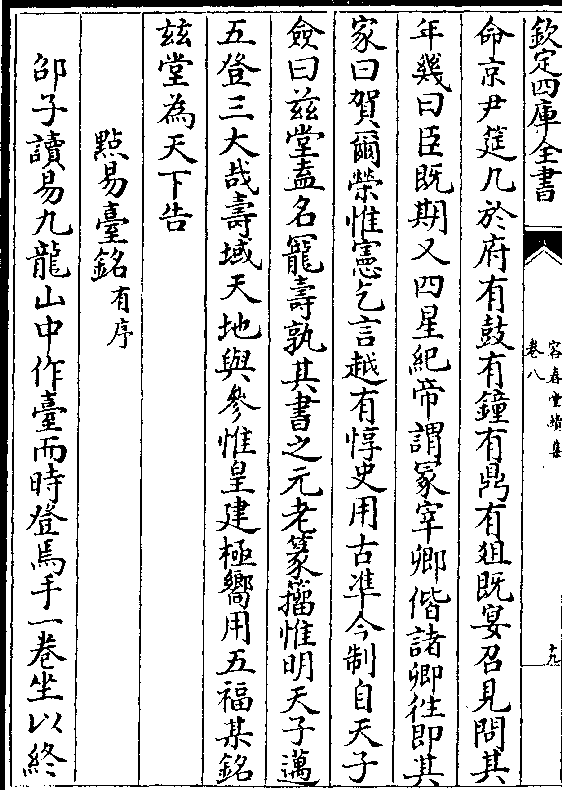 欽定四庫全書
容春堂續集
卷八
十九
命京尹筵几於府有鼓有鐘有鼎有俎既宴召見問其
年幾曰臣既期又四星紀帝謂冢宰卿偕諸卿往即其
家曰賀爾榮惟憲乞言越有惇史用古準今制自天子
僉曰兹堂盍名寵壽孰其書之元老篆籀惟明天子邁
五登三大哉壽域天地與參惟皇建極嚮用五福某銘
兹堂為天下告
點易臺銘有序
邵子讀易九龍山中作臺而時登焉手一卷坐以終